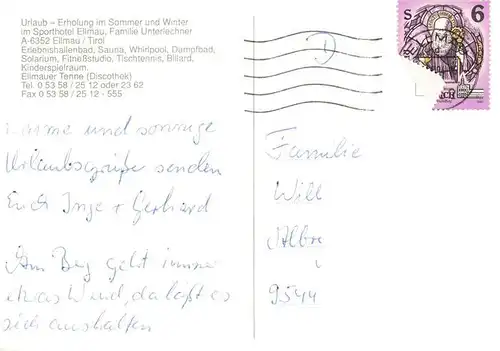 Urlaub – Erholung im Sommer und Winter
im Sporthotel Ellmau, Familie Unterlechner
A-6352 Ellmau / Tirol
Erlebnishallenbad, Sauna, Whirlpool, Dampfbad,
Solarium, Fitneßstudio, Tischtennis, Billard,
Kinderspielraum.
Ellmauer Tenne (Discothek)
Tel. 0 53 58 / 25 12 oder 23 62
Fax 0 53 58 / 25 12 - 555
S 6
D
Warme und sonnige
Urlaubsgrüße senden
Euch Inge + Gerhard
Am Berg geht immer
etwas Wind, da läßt es
sich aushalten
Familie
Will
9544